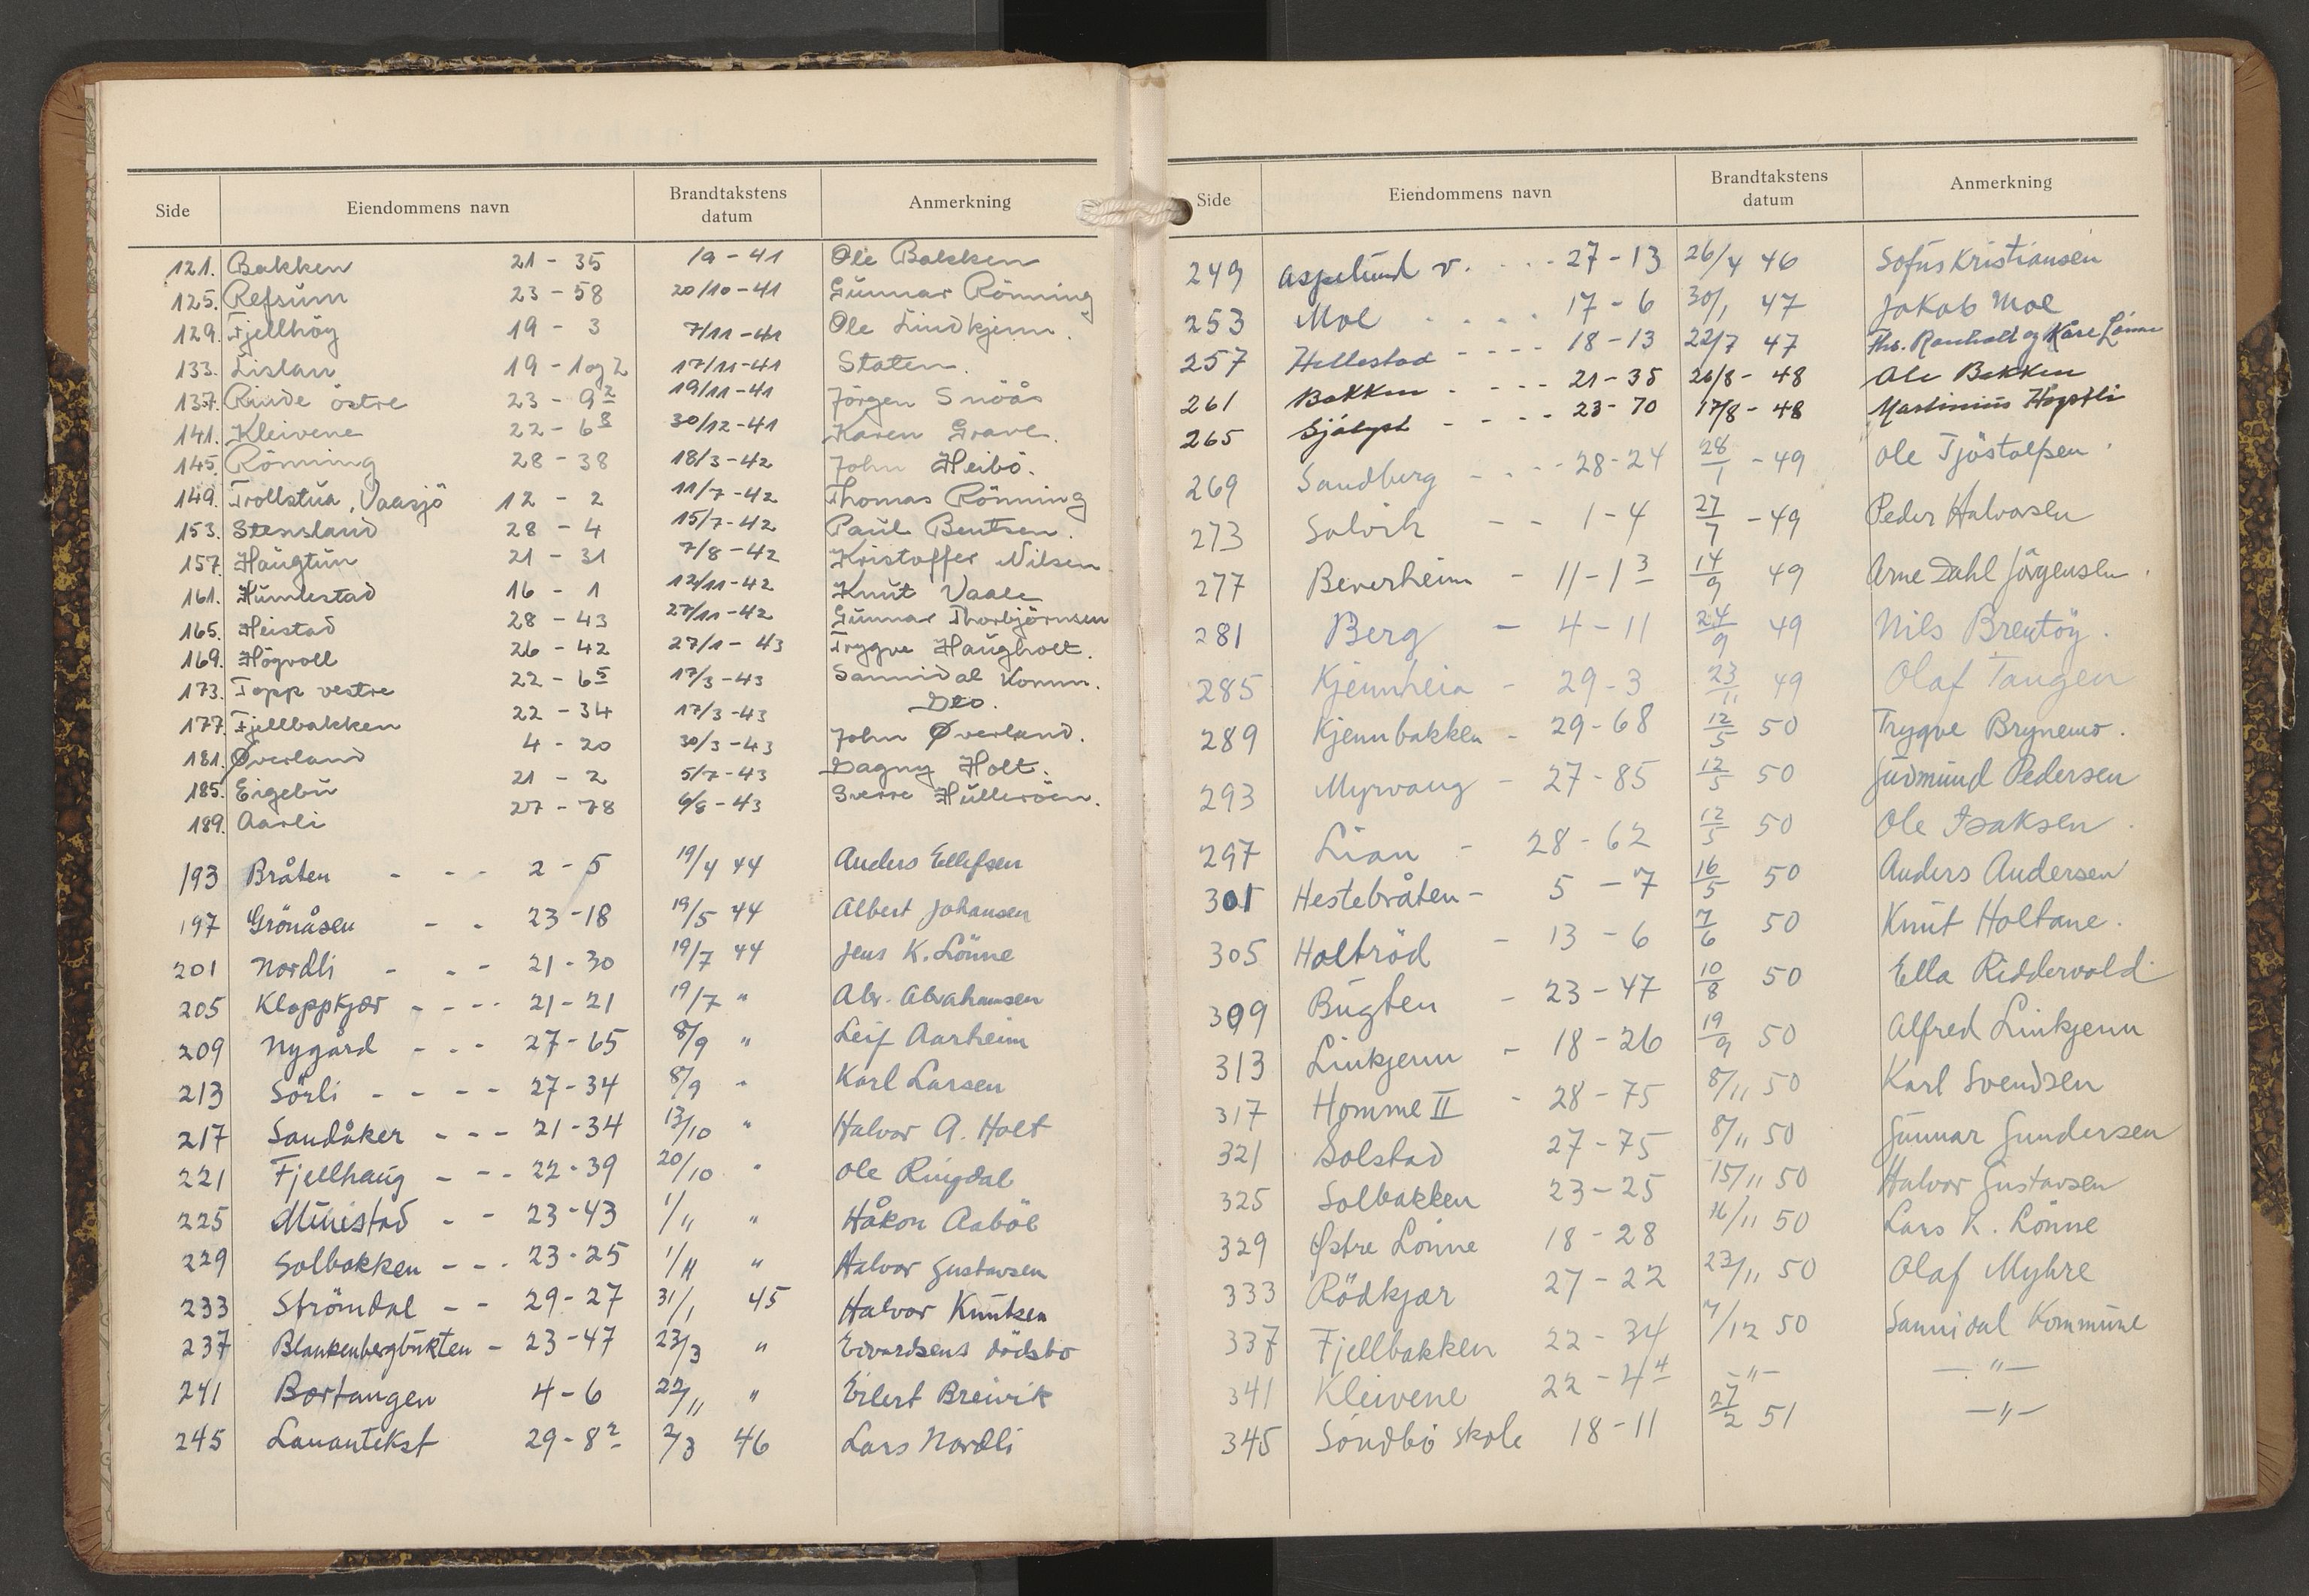 Side Eiendommens navn Brandtakstens datum Anmerkning
121. Bakken 21 - 35 19 - 41 Ole Bakken
125. Refsum 23 - 58 20/10 - 41 Gunnar Rönning
129. Fjellhöy 19 - 3 7/11 - 41 Ole Lindkjenn.
133. Lislau 19 - 1 og 2 17/11 - 41 Staten.
137. Rinde östre 23 - 9 2 19/11 - 41 Jörgen Snöås
141. Kleivene 22 - 6 8 30/12 - 41 Karen Grave.
145. Rönning 28 - 38 18/3 - 42 John Heibö.
149. Trollstua, Vaasjö 12 - 2 11/7 - 42 Thomas Rönning
153. Stensland 28 - 4 15/7 - 42 Paul Bentsen.
157. Haugtun 21 - 31 7/8 - 42 Kristoffer Nilsen
161. Humlestad 16 - 1 12/11 - 42 Knut Vaale
165. Heistad 28 - 43 27/11 - 42 Gunnar Thorbjörnsen
169. Högvoll 26 - 42 27/1 - 43 Trygve Haugholt.
173. Topp vestre 22 - 6 5 17/3 - 43 Sannidal Komm.
177. Fjellbakken 22 - 34 17/3 - 43 Do.
181. Øverland 4 - 20 30/3 - 43 John Øverland.
185. Eigebu 21 - 2 5/7 - 43 Dagny Holt.
189. Aarli 27 - 78 6/8 - 43 Sverre Hulleröen.
193 Bråten - - - 2 - 5 19/4 44 Anders Ellefsen
197 Grönåsen - - 23 - 18 19/5 44 Albert Johansen
201 Nordli - - - 21 - 30 19/7 44 Jens K. Lönne
205 Kloppkjær - - - - 21 - 21 19/7 " Abr. Abrahamsen
209 Nygård - - - 27 - 65 8/9 " Leif Aarheim
213 Sörli - - - - 27 - 34 8/9 " Karl Larsen
217 Sandåker - - - 21 - 34 13/10 " Halvor A. Holt
221 Fjellhaug - - - 22 - 39 20/10 " Ole Ringdal
225 Munistad - - 23 - 43 1/11 " Håkon Aaböl
229 Solbakken - - - 23 - 25 1/11 " Halvor Gustavsen
233 Strömdal - - 29 - 27 31/1 45 Halvor Knutsen
237 Blankenbergbukten - 23 - 47 23/3 " Edvardsens dödsbo
241 Bortangen 4 - 6 22/11 " Eilert Breivik
245 29 - 8 2 2/3 46 Lars Nordli
Side Eiendommens navn Brandtakstens datum Anmerkning
249 Aspelund v. - - - 27 - 13 26/4 46 Sofus Kristiansen
253 Mol - - - - 17 - 6 30/1 47 Jakob Mol
257 Hellestad - - - - 18 - 13 22/7 47 Ths. Ranholt og Kåre Lönne
261 Bakken - - - - 21 - 35 26/8 - 48 Ole Bakken
265 Sjölyst - - - - 23 - 70 17/8 - 48 Martinius
269 Sandberg - - - - 28 - 24 28/1 - 49 Ole Tjöstolfsen
273 Solvik - - 1 - 4 27/7 - 49 Peder Halvorsen
277 Beverheim - 11 - 1 3 14/9 49 Arne Dahl Jörgensen.
281 Berg - 4 - 11 24/9 49 Nils Brentöy.
285 Kjennheia - 29 - 3 23/11 49 Olaf Tangen
289 Kjennbakken - 29 - 68 12/5 50 Trygve Brynemo.
293 Myrvang - 27 - 85 12/5 50 Gudmund Pedersen
297 Lian - 28 - 62 12/5 50 Ole Isaksen.
301 Hestebråten - 5 - 7 16/5 50 Anders Andersen
305 Holtröd - 13 - 6 7/6 50 Knut Holtane.
309 Bugten - 23 - 47 10/8 50 Ella Riddervold
313 Linkjenn - 18 - 26 19/9 50 Alfred Linkjenn
317 Homme II - 28 - 75 8/11 50 Karl Svendsen
321 Solstad 27 - 75 8/11 50 Gunnar Gundersen
325 Solbakken 23 - 25 15/11 50 Halvor Gustavsen
329 Østre Lönne 18 - 28 16/11 50 Lars K. Lönne
333 Rödkjær 27 - 22 23/11 50 Olaf Myhre
337 Fjellbakken 22 - 34 7/12 50 Sannidal Kommune
341 Kleivene 22 - 4 4 - " - - " -
345 Söndbö skole 18 - 11 27/2 51 - " -